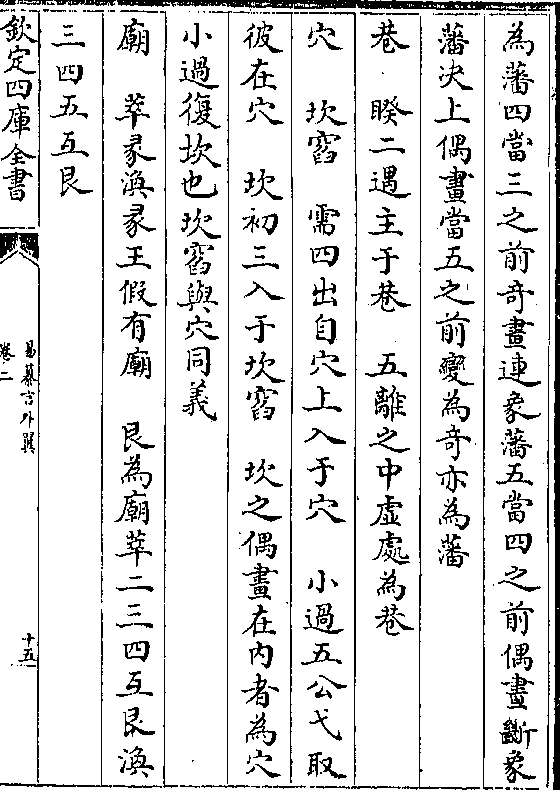 為藩四當三之前奇畫連象藩五當四之前偶畫斷象
藩决上偶畫當五之前變為奇亦為藩
巷 睽二遇主于巷 五離之中虚處為巷
穴 坎窞 需四出自穴上入于穴 小過五公弋取
彼在穴 坎初三入于坎窞 坎之偶畫在内者為穴
小過復坎也坎窞與穴同義
廟 萃彖渙彖王假有廟 艮為廟萃二三四互艮渙
三四五互艮
欽定四庫全書
易纂言外翼
卷二
十五